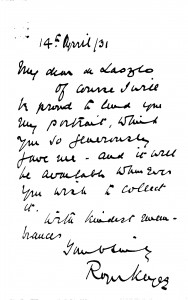 14th April/31
My dear de Laszlo
of course I will
be proud to lend you
my portrait, which
you so generously
gave me - and it will
be available whenever
you wish to collect
it.
With kindest remem-
brances
Yours
Roger Keyes